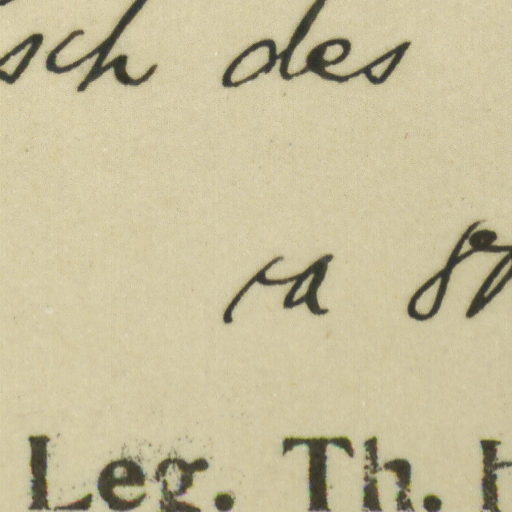 sch des
ca 8
Leg. Th.